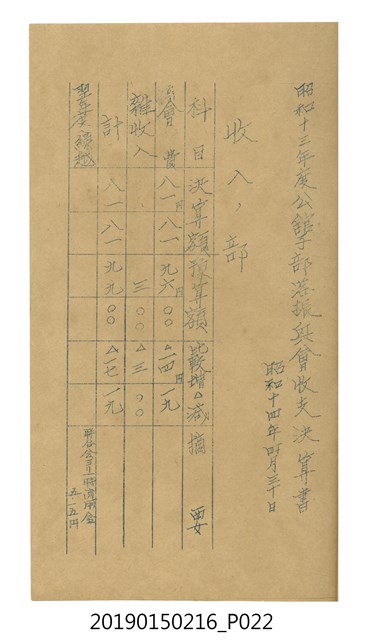 昭和十三年度公館子部落振興會收支決算書
昭和十四年四月三十日
收入ノ部
科目 決算額 豫算額 比較增△減 摘要
會費 八一円八一 九六円〇〇 △一四円一九
雜收入 三〇〇 △三〇〇
計 八一八一 九九〇〇 △一七一九
翌年度繰越
五.一五円
20190150216_P022